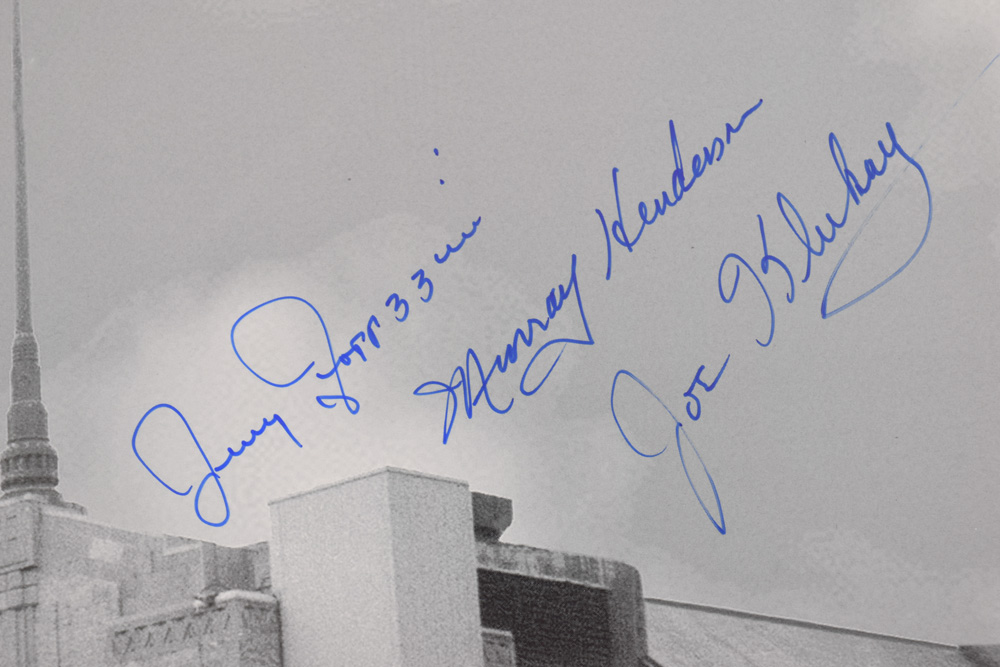 Jerry Toppazzini
Murray Henderson
Joe Klukay